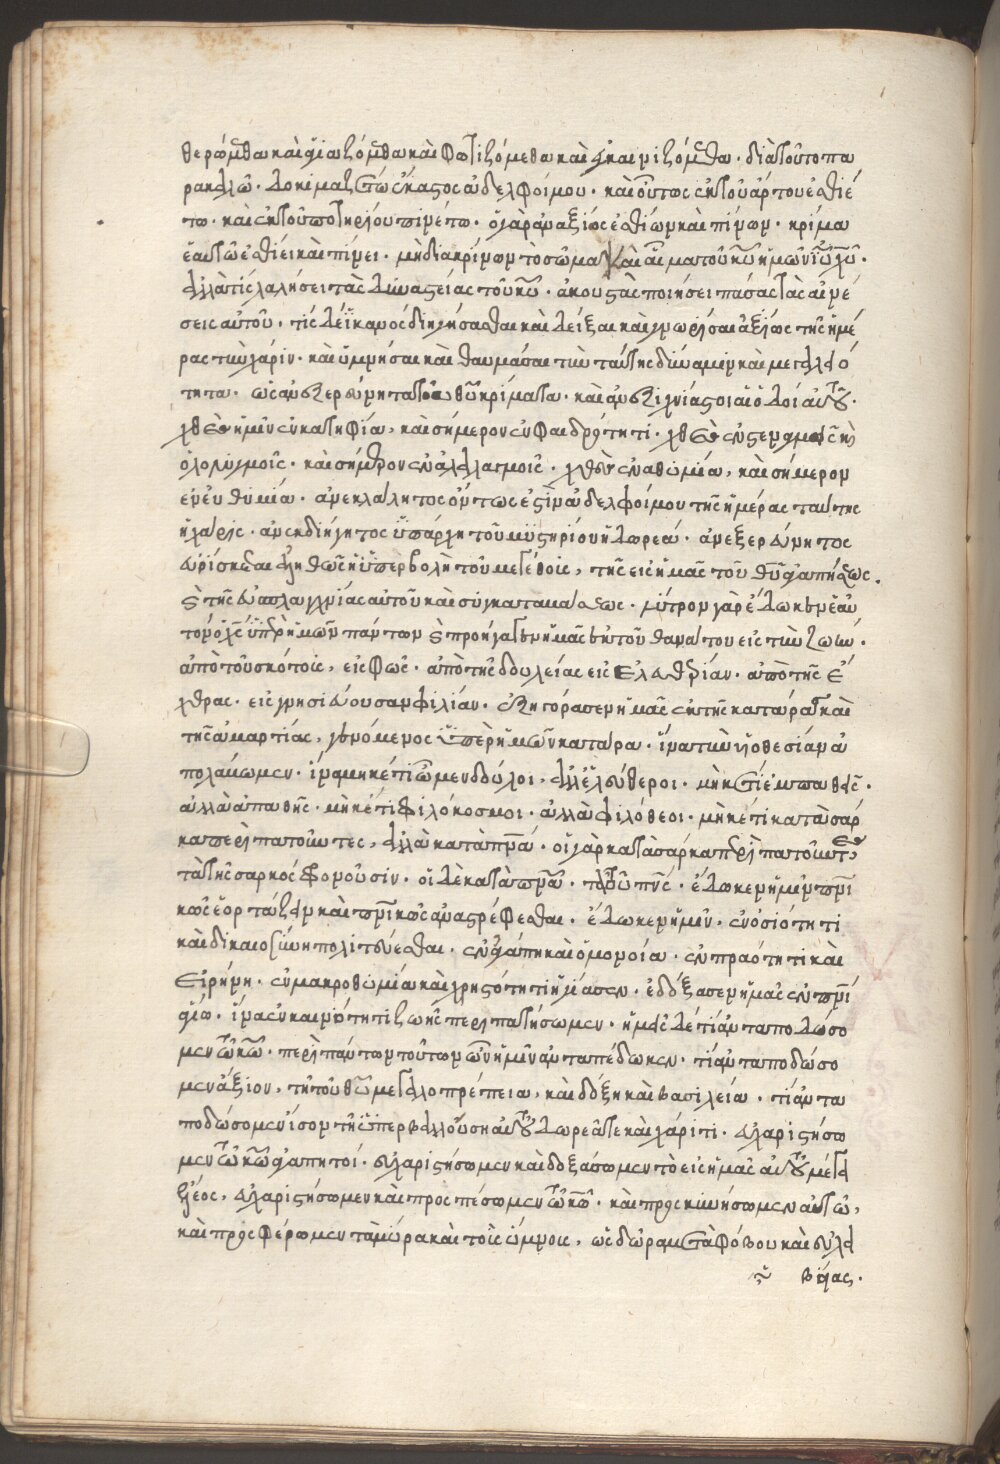 θερούμεθα καὶ ἁγιαζόμεθα καὶ φωτιζόμεθα καὶ ἐγκαινιζόμεθα· διὰ τοῦτο πα
ρακαλῶ· δοκιμαζέτω ἕκαστος ἀδελφοί μου· καὶ οὕτως ἐκ τοῦ ἄρτου ἐσθιέ
τω· καὶ ἐκ τοῦ ποτηρίου πινέτω· ὁ γὰρ ἀναξίως ἐσθίων καὶ πίνων· κρίμα
ἑαυτῶ ἐσθίει καὶ πίνει· μὴ διακρίνων τὸ σῶμα καὶ αἷμα τοῦ κυ ἡμῶν ιυ χυ·
ἀλλὰ τίς λαλήσει τὰς δυναστείας τοῦ κυ· ἀκουστὰς ποιήσει πάσας τὰς αἰνέ
σεις αὐτοῦ· τίς δὲ ἱκανὸς διηγήσασθαι καὶ δεῖξαι καὶ γνωρίσαι ἀξίως τῆς ἡμέ
ρας τὴν χάριν· καὶ ὑμνῆσαι καὶ θαυμάσαι τὴν ταύτης δύναμιν καὶ μεγαλειό
τητα· ὡς ἀνεξερεύνητα τοῦ θυ κρίματα· καὶ ἀνεξιχνίαστοι αἱ ὁδοὶ αὐτοῦ·
χθὲς ἡμῖν ἐν κατηφία, καὶ σήμερον ἐν φαιδρότητι· χθὲς ἐν στεναγμοῖς καὶ
ὀλολυγμοῖς· καὶ σήμερον ἐν ἀλαλαγμοῖς· χθὲς ἐν ἀθυμία, καὶ σήμερον
ἐν εὐθυμία· ἀνεκλάλητος ὄντως ἐστὶν ἀδελφοί μου τῆς ἡμέρας ταύτης
ἡ χάρις· ἀνεκδιήγητος ὑπάρχη τοῦ μυστηρίου ἡ δωρεά· ἀνεξερεύνητος
εὑρίσκεται ἀληθῶς ἡ ὑπερβολὴ τοῦ μεγέθους, τῆς εἰς ἡμᾶς τοῦ θυ ἀγαπήσεως·
καὶ τῆς εὐσπλαγχνίας αὐτοῦ καὶ συγκαταβάσεως· λύτρον γὰρ ἔδωκεν ἑαυ
τὸν ὁ χς ὑπὲρ ἡμῶν πάντων καὶ προήγαγεν ἡμᾶς ἐκ τοῦ θανάτου εἰς τὴν ζωήν·
ἀπὸ τοῦ σκότους, εἰς φῶς· ἀπὸ τῆς δουλείας εἰς ἐλευθερίαν· ἀπὸ τῆς ἔ
χθρας· εἰς γνησιεύουσαν φιλίαν· ἐξηγόρασεν ἡμᾶς ἐκ τῆς κατάρας καὶ
τῆς ἁμαρτίας, γενόμενος ὑπὲρ ἡμῶν κατάρα· ἵνα τὴν υἱοθεσίαν ἀ
πολάβωμεν· ἵνα μηκέτι ὦμεν δούλοι, ἀλλ' ἐλεύθεροι· μηκέτι ἐμπαθεῖς·
ἀλλὰ ἀπαθῆς· μηκέτι φιλόκοσμοι· ἀλλὰ φιλόθεοι· μηκέτι κατὰ σάρ
κα περιπατοῦντες, ἀλλὰ κατὰ πνα· οἱ γὰρ κατὰ σάρκα περιπατοῦντες
τὰ τῆς σαρκὸς φρονοῦσιν· οἱ δὲ κατὰ πνα· τὰ τοῦ πνς· ἔδωκεν ἡμῖν πνι
κῶς ἑορτάζειν καὶ πνικῶς ἀναστρέφεσθαι· ἔδωκεν ἡμῖν· ἐν ὁσιότητι
καὶ δικαιοσύνη πολιτεύεσθαι· ἐν ἀγάπη καὶ ὁμονοία· ἐν πραότητι καὶ
εἰρήνη· ἐν μακροθυμία καὶ χρηστότητι ἡγίασεν· ἐδόξασεν ἡμᾶς ἐν πνι
ἁγίω· ἵνα ἐν καινότητι ζωῆς περιπατήσωμεν· ἡμεῖς δὲ τί ἀνταποδώσο
μεν τῶ κω· περὶ πάντων τούτων ὧν ἡμῖν ἀνταπέδωκεν· τί ἀνταποδώσο
μεν ἄξιον, τῆ τοῦ θυ μεγαλοπρέπεια, καὶ δόξη καὶ βασιλεία· τί ἀντα
ποδώσομεν ἴσον τῆ ὑπερβαλλούση αὐτοῦ δωρεᾶ τε καὶ χάριτι· εὐχαριστήσω
μεν τῶ κω ἀγαπητοί· εὐχαριστήσωμεν καὶ δοξάσωμεν τὸ εἰς ἡμᾶς αὐτοῦ μέγα
ἔλεος, εὐχαριστήσωμεν καὶ προσπέσωμεν τῶ κω· καὶ προσκυνήσωμεν αὐτῶ,
καὶ προσφέρωμεν τὰ μύρα καὶ τοὺς ὕμνους, ὡς δῶρα μετὰ φόβου καὶ εὐλα
βείας·